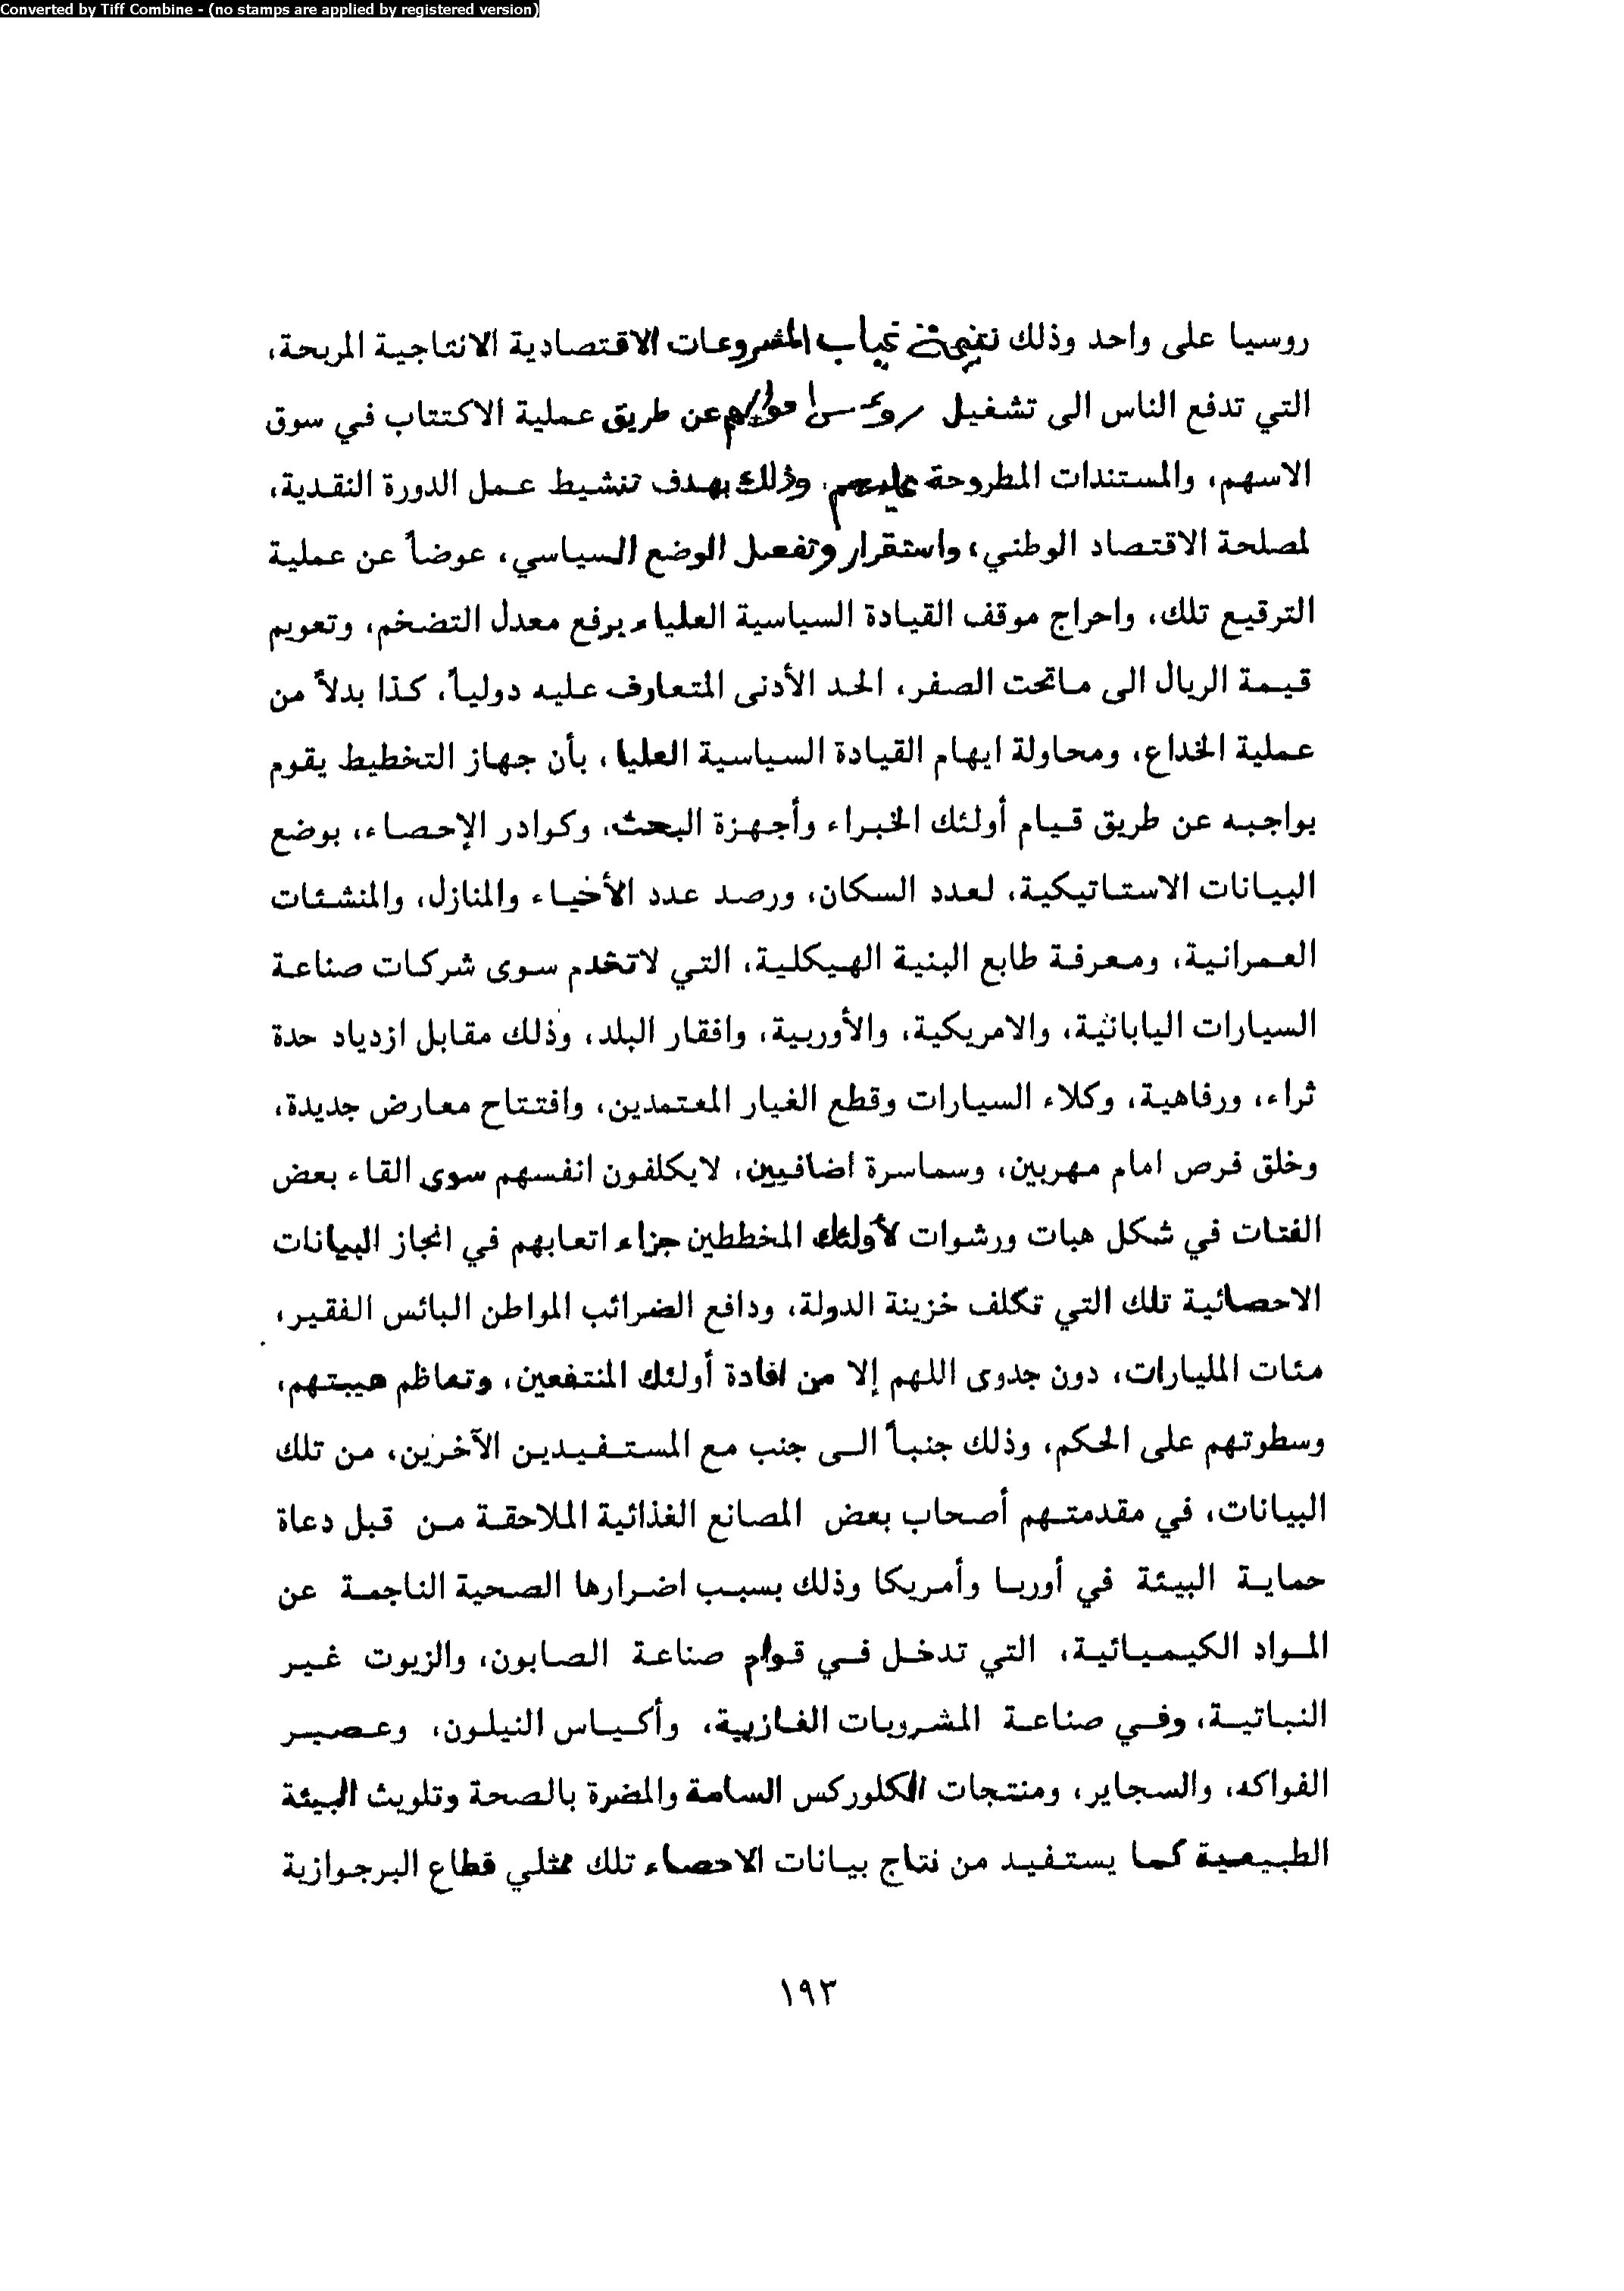 Converted by Tiff Combine - (no stamps are applied by registered version)
روسيا على واحد وذلك نتيجة غياب المشروعات الاقتصادية الانتاجية المربحة،
التي تدفع الناس الى تشغيل رؤوس اموالهم عن طريق عملية الاكتتاب في سوق
الاسهم، والمستندات المطروحة عليهم، وذلك بهدف تنشيط عمل الدورة النقدية،
لمصلحة الاقتصاد الوطني، واستقرار وتفعيل الوضع السياسي، عوضاً عن عملية
الترقيع تلك، واحراج موقف القيادة السياسية العليا، برفع معدل التضخم، وتعويم
قيمة الريال الى ماتحت الصفر، الحد الأدنى المتعارف عليه دولياً، كذا بدلاً من
عملية الخداع، ومحاولة ايهام القيادة السياسية العليا، بأن جهاز التخطيط يقوم
بواجبه عن طريق قيام أولئك الخبراء وأجهزة البحث، وكوادر الإحصاء، بوضع
البيانات الاستاتيكية، لعدد السكان، ورصد عدد الأخياء والمنازل، والمنشئات
العمرانية، ومعرفة طابع البنية الهيكلية، التي لاتخدم سوى شركات صناعة
السيارات اليابانية، والامريكية، والأوربية، وافقار البلد، وذلك مقابل ازدياد حدة
ثراء، ورفاهية، وكلاء السيارات وقطع الغيار المعتمدين، وافتتاح معارض جديدة،
وخلق فرص امام مهربين، وسماسرة اضافيين، لايكلفون انفسهم سوى القاء بعض
الفتات في شكل هبات ورشوات لأولئك المخططين جزاء اتعابهم في انجاز البيانات
الاحصائية تلك التي تكلف خزينة الدولة، ودافع الضرائب المواطن البائس الفقير،
مئات المليارات، دون جدوى اللهم إلا من افادة أولئك المنتفعين، وتعاظم هيبتهم،
وسطوتهم على الحكم، وذلك جنباً الى جنب مع المستفيدين الآخرين، من تلك
البيانات، في مقدمتهم أصحاب بعض المصانع الغذائية الملاحقة من قبل دعاة
حماية البيئة في أوربا وأمريكا وذلك بسبب اضرارها الصحية الناجمة عن
المواد الكيميائية، التي تدخل في قوام صناعة الصابون، والزيوت غير
النباتية، وفي صناعة المشروبات الغازية، وأكياس النيلون، وعصير
الفواكه، والسجاير، ومنتجات الكلوركس السامة والمضرة بالصحة وتلويث البيئة
الطبيعية كما يستفيد من نتاج بيانات الاحصاء تلك ممثلي قطاع البرجوازية
١٩٣